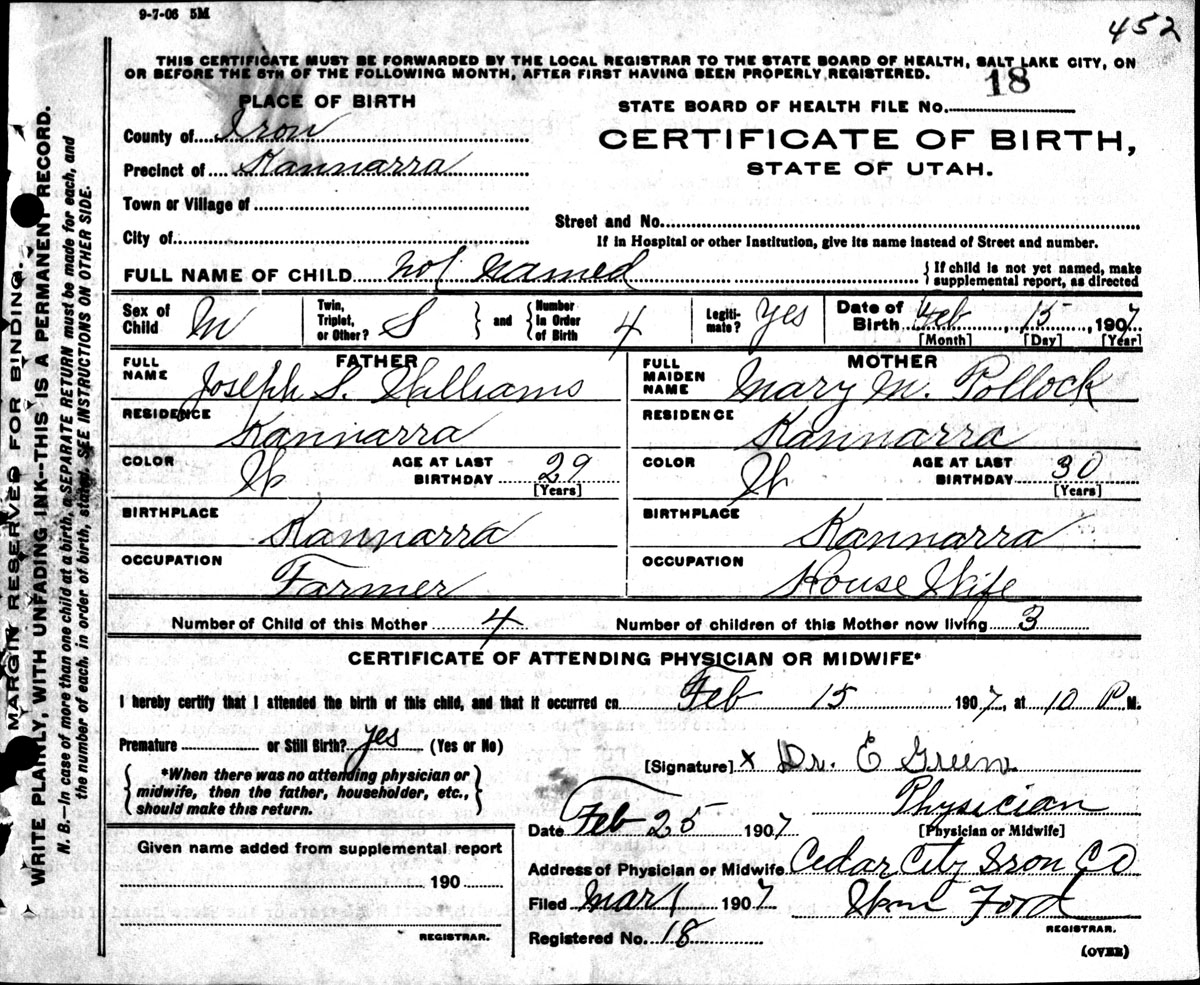 9-7-06 5M
452
THIS CERTIFICATE MUST BE FORWARDED BY THE LOCAL REGISTRAR TO THE STATE BOARD OF HEALTH, SALT LAKE CITY, ON
OR BEFORE THE 5TH OF THE FOLLOWING MONTH, AFTER FIRST HAVING BEEN PROPERLY REGISTERED.
PLACE OF BIRTH
County of Iron
Precinct of Kannarra
Town or Village of
City of
STATE BOARD OF HEALTH FILE No. 18
CERTIFICATE OF BIRTH,
STATE OF UTAH.
Street and No.
If in Hospital or other Institution, give its name instead of Street and number.
FULL NAME OF CHILD not named
If child is not yet named, make
supplemental report, as directed
Sex of Child M
Twin, Triplet, or Other? S
and Number in Order of Birth 4
Legitimate? Yes
Date of Birth Feb, 15, 1907
[Month] [Day] [Year]
FATHER
FULL NAME Joseph S. Williams
RESIDENCE Kannarra
COLOR W AGE AT LAST BIRTHDAY 29
[Years]
BIRTHPLACE Kannarra
OCCUPATION Farmer
MOTHER
FULL MAIDEN NAME Mary M. Pollock
RESIDENCE Kannarra
COLOR W AGE AT LAST BIRTHDAY 30
[Years]
BIRTHPLACE Kannarra
OCCUPATION House Wife
Number of Child of this Mother 4 Number of children of this Mother now living 3
CERTIFICATE OF ATTENDING PHYSICIAN OR MIDWIFE*
I hereby certify that I attended the birth of this child, and that it occurred on Feb 15 1907, at 10 P M.
Premature or Still Birth? yes (Yes or No)
*When there was no attending physician or
midwife, then the father, householder, etc.,
should make this return.
Given name added from supplemental report
190
REGISTRAR.
[Signature] x Dr. E Green
Physician
[Physician or Midwife]
Date Feb 25 1907
Address of Physician or Midwife Cedar City Iron Co
Filed Mar 1 1907 Wm Ford
REGISTRAR.
Registered No. 18
(OVER)
MARGIN RESERVED FOR BINDING.
WRITE PLAINLY, WITH UNFADING INK--THIS IS A PERMANENT RECORD.
N. B.—In case of more than one child at a birth, a SEPARATE RETURN must be made for each, and
the number of each, in order of birth, stated. SEE INSTRUCTIONS ON OTHER SIDE.